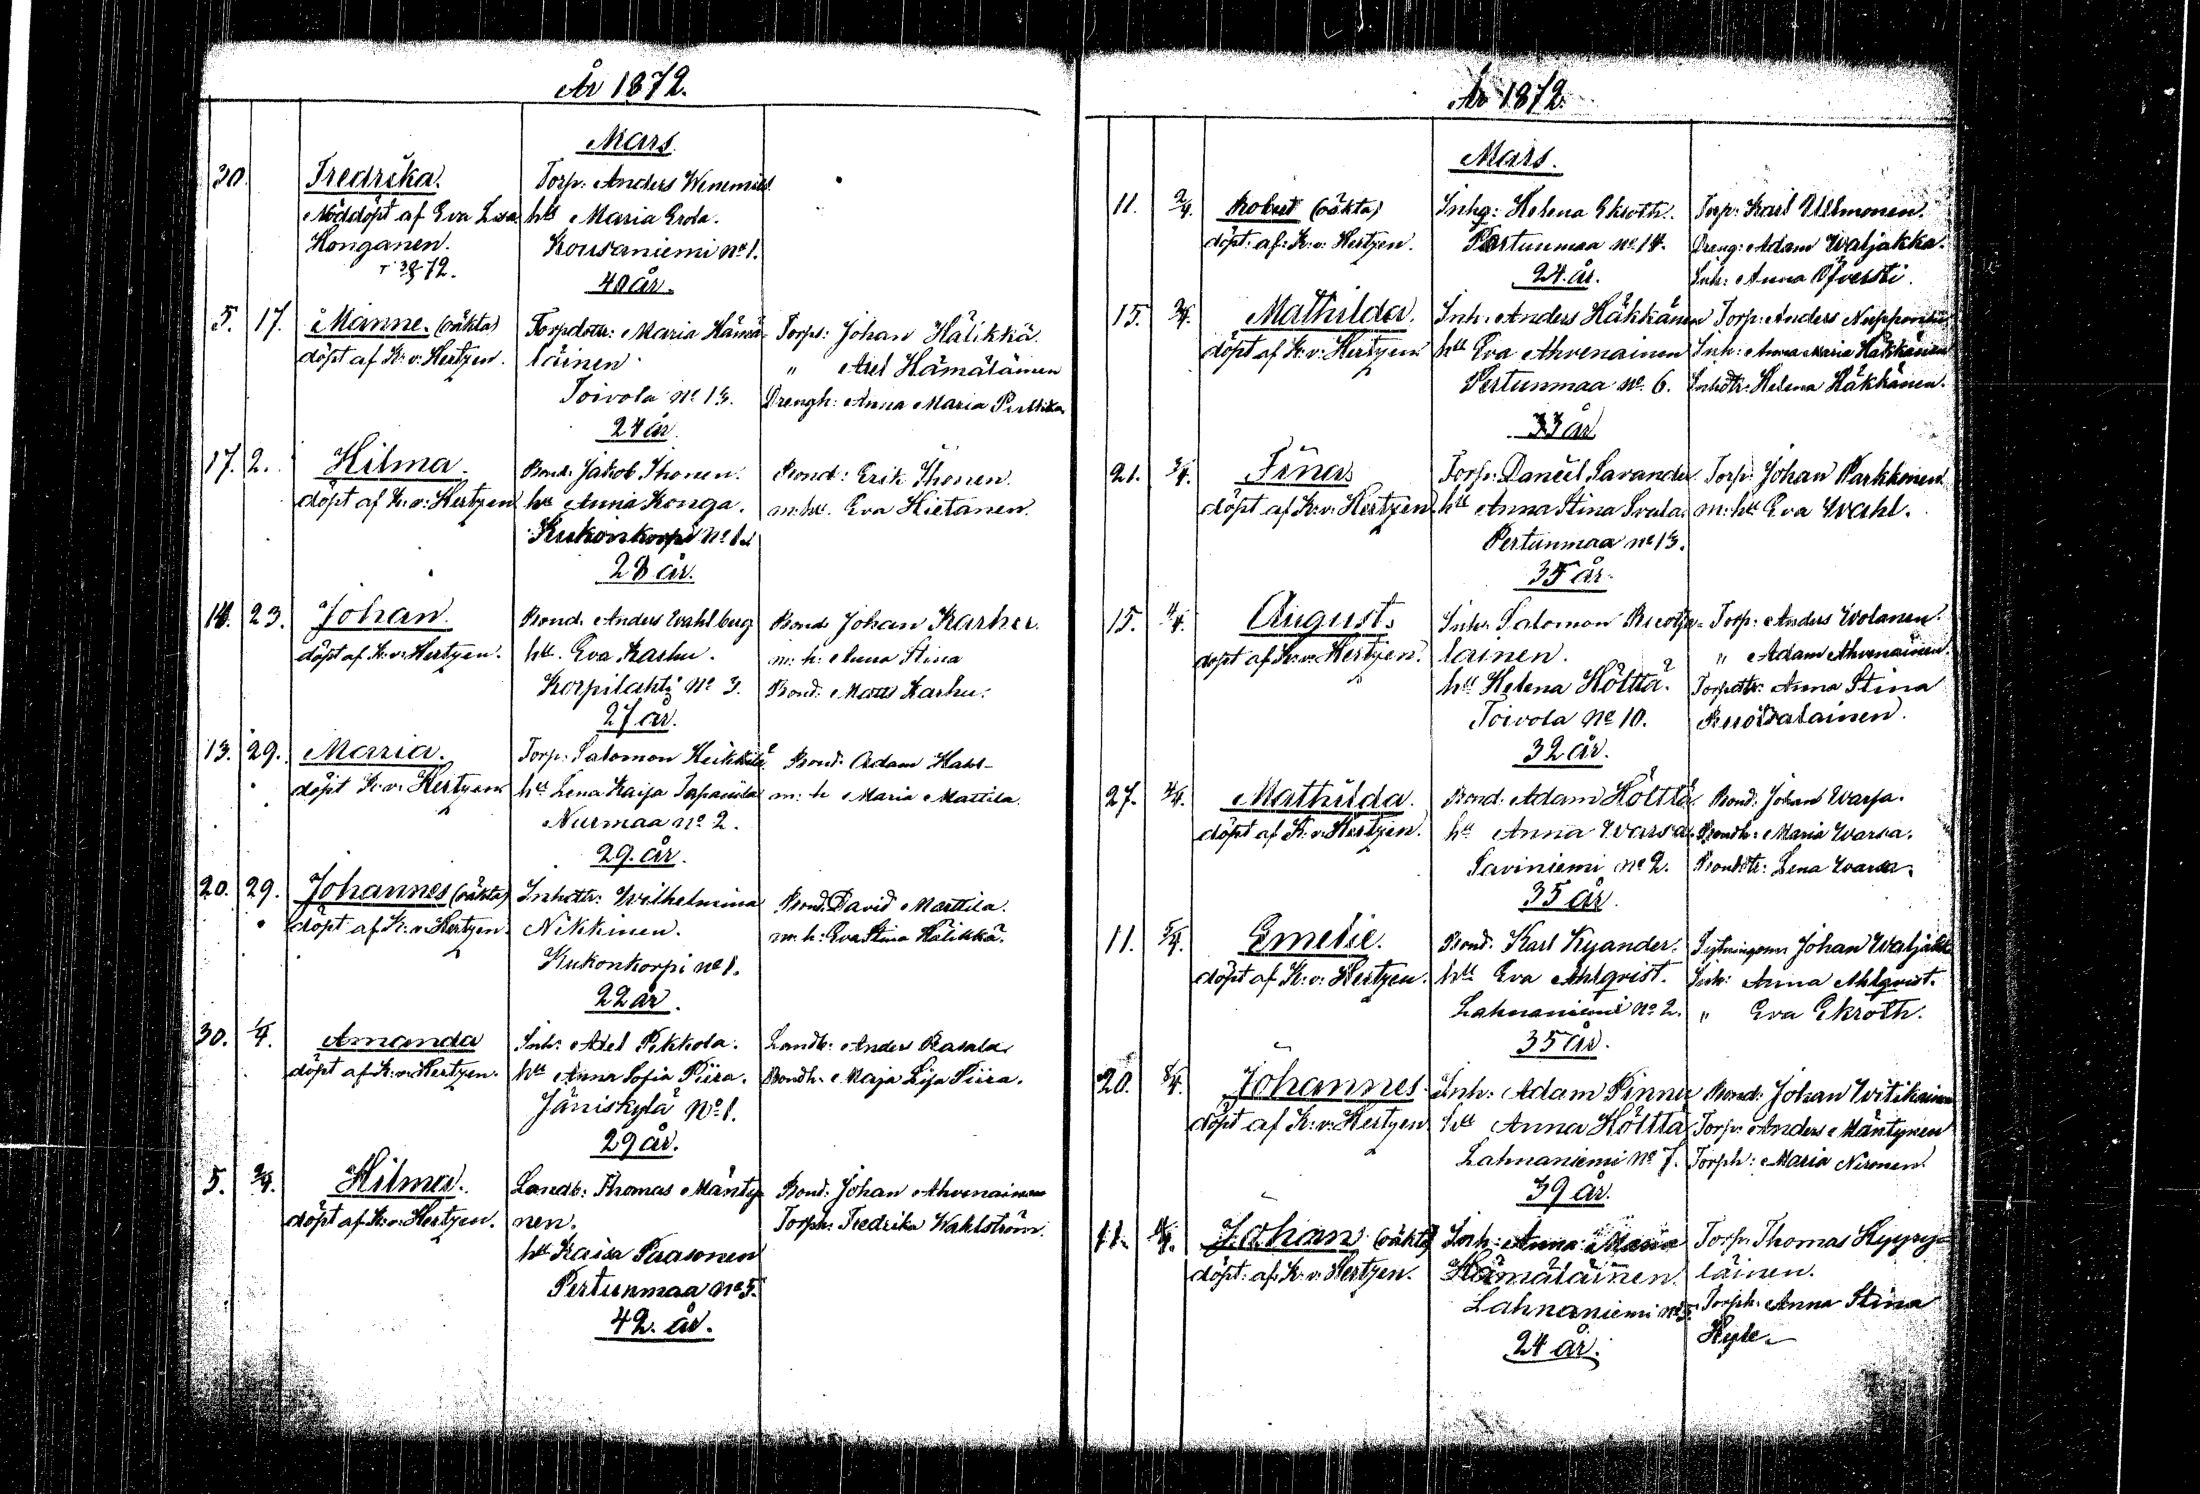 År 1872.
Mars.
30. Fredrika. Torp: Anders
Nöddöpt af Eva Lisa hu Maria Erola.
Konganen. Kousaniemi No 1.
40 år.
5. 17. Manne. (oäkta) Torpdottr: Maria Hämä- Torp: Johan Hälikkä.
döpt af K: v: Hertzen. läinen. " Axel Hämäläinen
Toivola No 13. Drengh: Anna Maria Pulkka
24 år.
17. 2. Hilma. Bond: Jakob Ihonen. Bond: Erik Ihonen.
döpt af K: v: Hertzen hu Anna Konga. m: hu. Eva Hietanen.
Kukonkorpi No 1.
28 år.
14. 23. Johan. Bond: Anders Wahlberg Bond: Johan Karhu.
döpt af K: v: Hertzen. hu. Eva Karhu. m: h: Anna Stina
Korpilahti No 3. Bond: Matts Karhu.
27 år.
13. 29. Maria. Torp: Salomon Heikkilä Bond: Adam Hall-
döpt K: v: Hertzen hu Lena Kaisa Tapanila m: h Maria Mattila.
Nurmaa No 2.
29 år.
20. 29. Johannes (oäkta) Inhdttr: Wilhelmina Bond: David Marttila.
döpt af K: v: Hertzen. Nikkinen. m: h: Eva Stina Hälikkä.
Kukonkorpi No 1.
22 år.
30. 1/4. Amanda Inh: Axel Pekkola. Landb: Anders Rasala.
döpt af K: v: Hertzen. hu Anna Sofia Piira. Bondh: Maja Lisa Piira.
Jäniskylä No 1.
29 år.
5. 2/4. Hilma. Landb: Thomas Mänty- Bond: Johan Ahvenainen
döpt af K: v: Hertzen. nen. Torph: Fredrika Wahlström.
hu Kaisa Paasonen
Pertunmaa No 5.
42. år.
År 1872.
Mars.
11. 2/4. Robert (oäkta) Inhg: Helena Ekroth. Torp: Karl Ullmonen.
döpt: af: K: v: Hertzen. Pertunmaa No 14. Dreng: Adam Waljakka.
24 år. Inh: Anna Öfversti.
15. 3/4. Mathilda. Inh: Anders Häkkänen Torp: Anders
döpt af K: v: Hertzen. hu Eva Ahvenainen Inh: Anna Maria Häkkänen
Pertunmaa No 6. Inhdtr: Helena Häkkänen.
33 år
21. 3/4. Fina. Torp: Daniel Savander Torp: Johan Parkkonen
döpt af K: v: Hertzen hu Anna Stina m: hu Eva Wahl.
Pertunmaa No 13.
35 år.
15. 4/4. August. Inh: Salomon Ruotsa- Torp: Anders Wolanen.
döpt af K: v: Hertzen. lainen. " Adam Ahvenainen.
hu Helena Hölttä. Torpdttr: Anna Stina
Toivola No 10. Ruotsalainen.
32 år.
27. 4/4. Mathilda. Bond: Adam Hölttä Bond: Johan Warsa.
döpt af K: v: Hertzen. hu Anna Warsa. Bondh: Maria Warsa.
Saviniemi No 2. Bonddtr: Lena Warsa.
35 år.
11. 5/4. Emelie. Bond: Karl Kyander. Johan Waljakka
döpt af K: v: Hertzen. hu Eva Ahlqvist. Inh: Anna Ahlqvist.
Lahnaniemi No 2. " Eva Ekroth.
35 år.
20. 8/4. Johannes Inh: Adam Pinnu Bond: Johan Witikainen
döpt af K: v: Hertzen hu Anna Hölttä Torp: Anders Mäntynen
Lahnaniemi No 7. Torph: Maria Nironen.
39 år.
11. Johan (oäkta) Inh: Anna Maria Torp: Thomas Hyyry-
döpt: af: K: v: Hertzen. Hämäläinen. läinen.
Lahnaniemi No 5. Torph: Anna Stina
24 år.